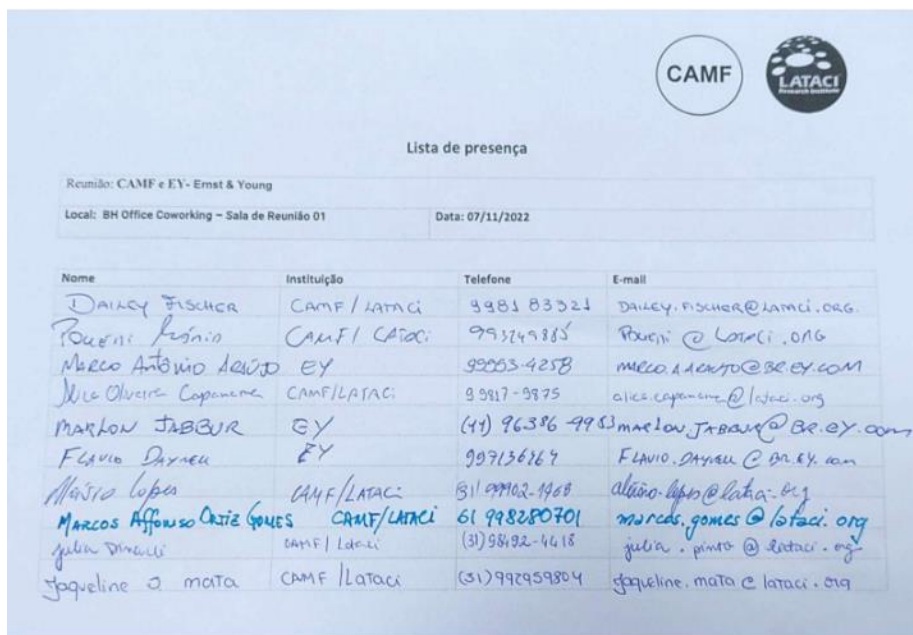 CAMF
LATACI
Research Institute
Lista de presença
Reunião: CAMF e EY- Ernst & Young
Local: BH Office Coworking – Sala de Reunião 01 Data: 07/11/2022
Nome Instituição Telefone E-mail
DAILEY FISCHER CAMF/LATACI 998183321 DAILEY.FISCHER@LATACI.ORG.
CAMF/ @ .ORG
MARCO ANTÔNIO ARAÚJO EY 99953-4258 MARCO.A.ARAUJO@BR.EY.COM
Alice Oliveira Capanema CAMF/LATACI 99817-9875 alice.capanema@lataci.org
MARLON JABBUR EY (11) 96386-9953 MARLON.JABBUR@BR.EY.com
FLAVIO DAYRELL EY 997136864 FLAVIO.DAYRELL@BR.EY.com
Lopes CAMF/LATACI (31) 99902-1968
MARCOS AFFONSO ORTIZ GOMES CAMF/LATACI 61 998280701 marcos.gomes@lataci.org
julia CAMF/Lataci (31) 98492-4418 julia.pinto@lataci.org
Jaqueline O mata CAMF/Lataci (31) 992959804 Jaqueline.mata@lataci.org